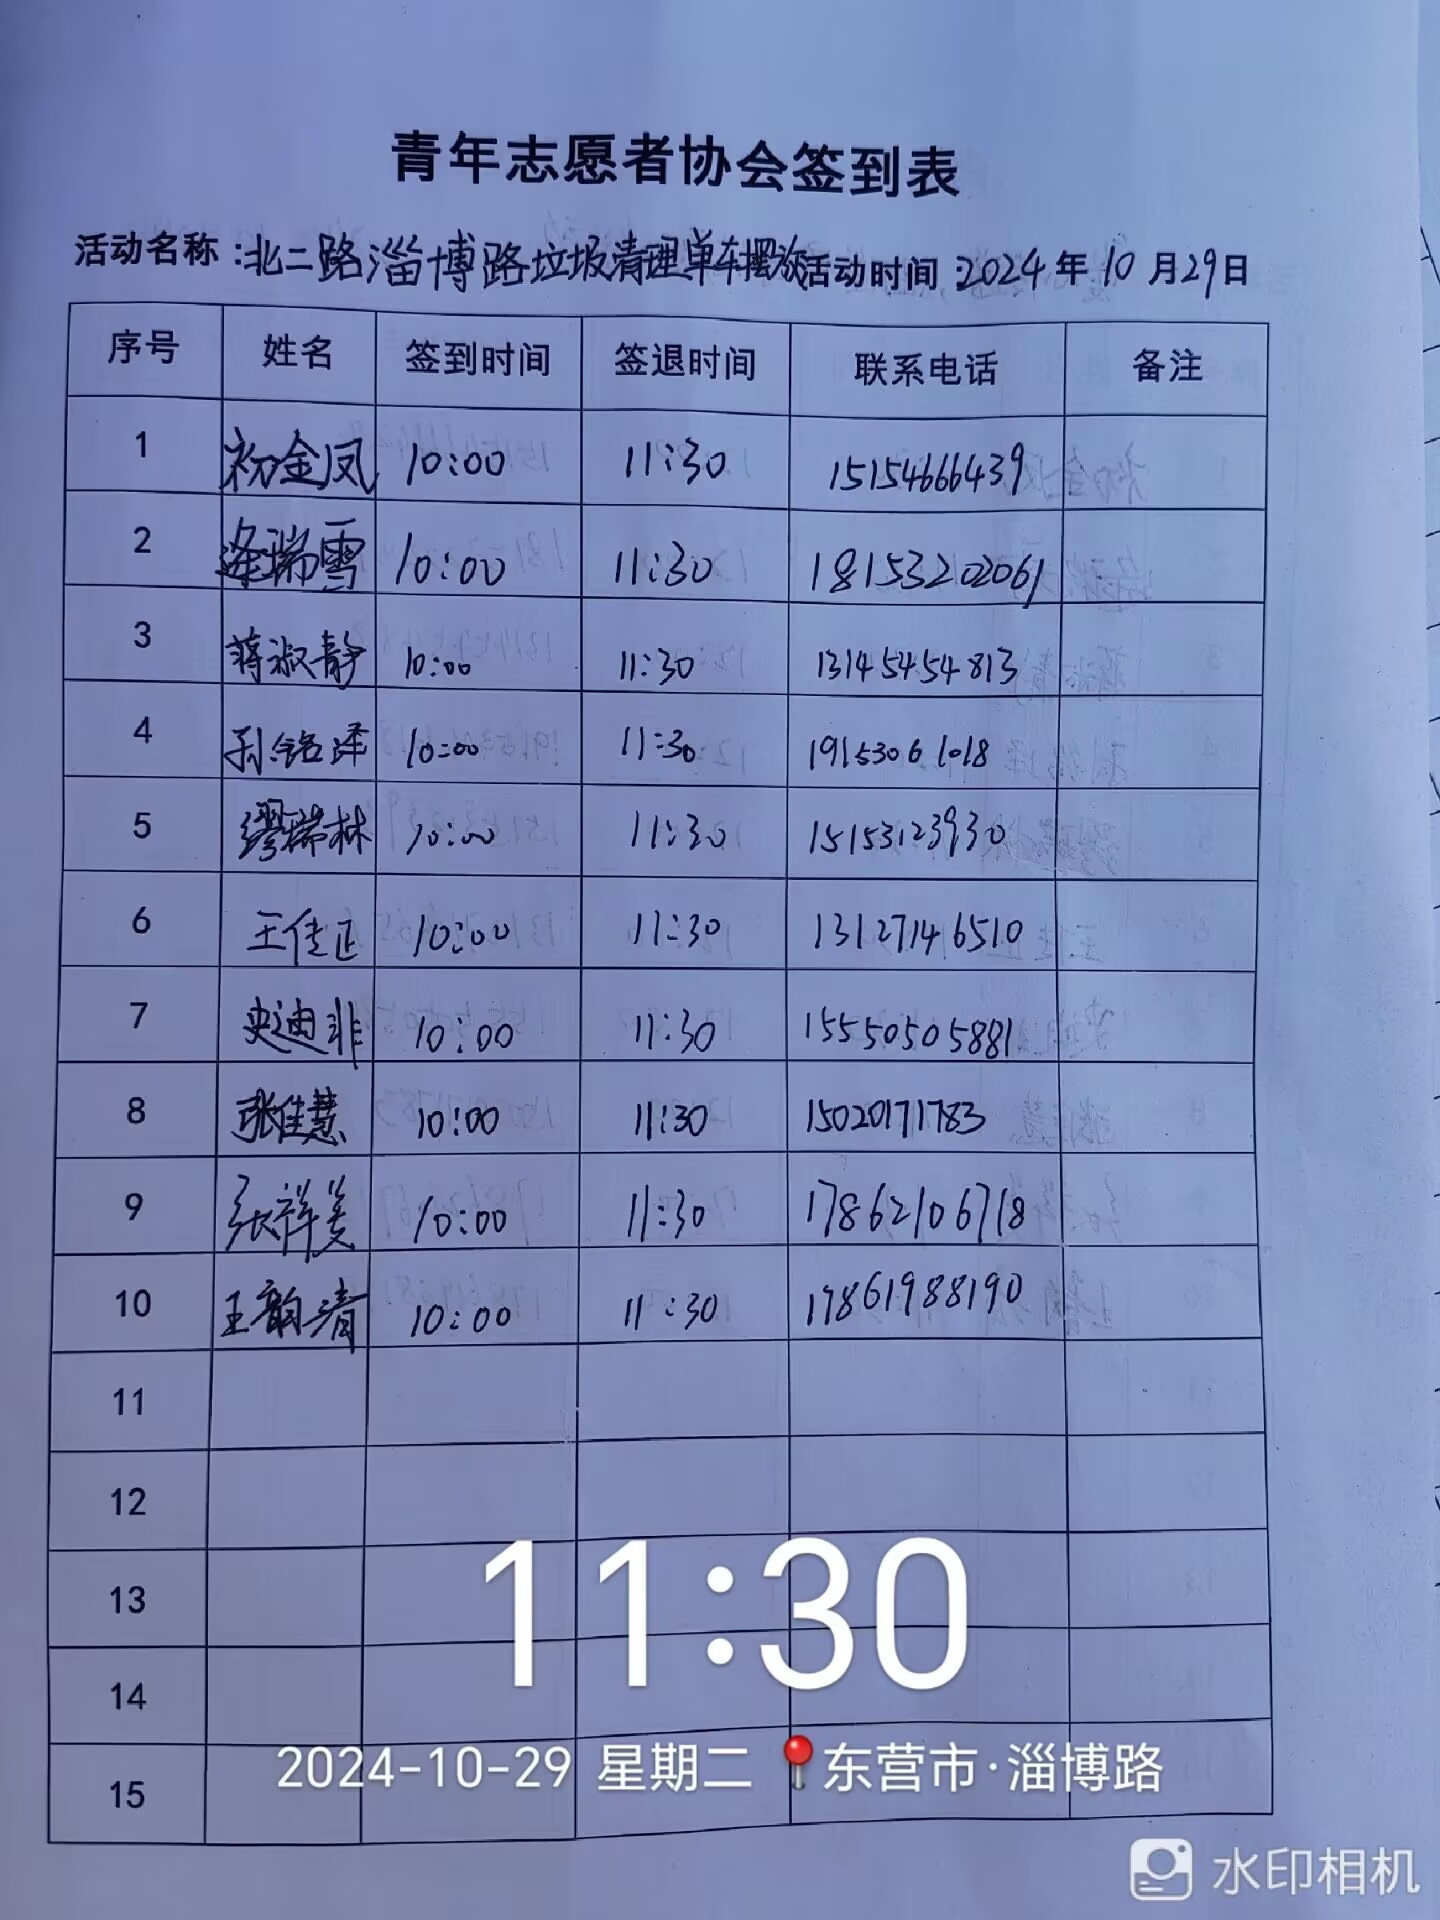 青年志愿者协会签到表
活动名称：北二路淄博路垃圾清理单车摆放 活动时间：2024年10月29日
序号 姓名 签到时间 签退时间 联系电话 备注
1 初金凤 10:00 11:30 15154666439
2 逄瑞雪 10:00 11:30 18153202061
3 蒋淑静 10:00 11:30 13145454813
4 孙铭泽 10:00 11:30 19153061018
5 缪瑞林 10:00 11:30 15153123930
6 王佳正 10:00 11:30 13127146510
7 史迪非 10:00 11:30 15550505881
8 张佳慧 10:00 11:30 15020171783
9 张祥美 10:00 11:30 17862106718
10 王韵清 10:00 11:30 17861988190
11
12
13
14
15
11:30
2024-10-29 星期二 东营市·淄博路
水印相机